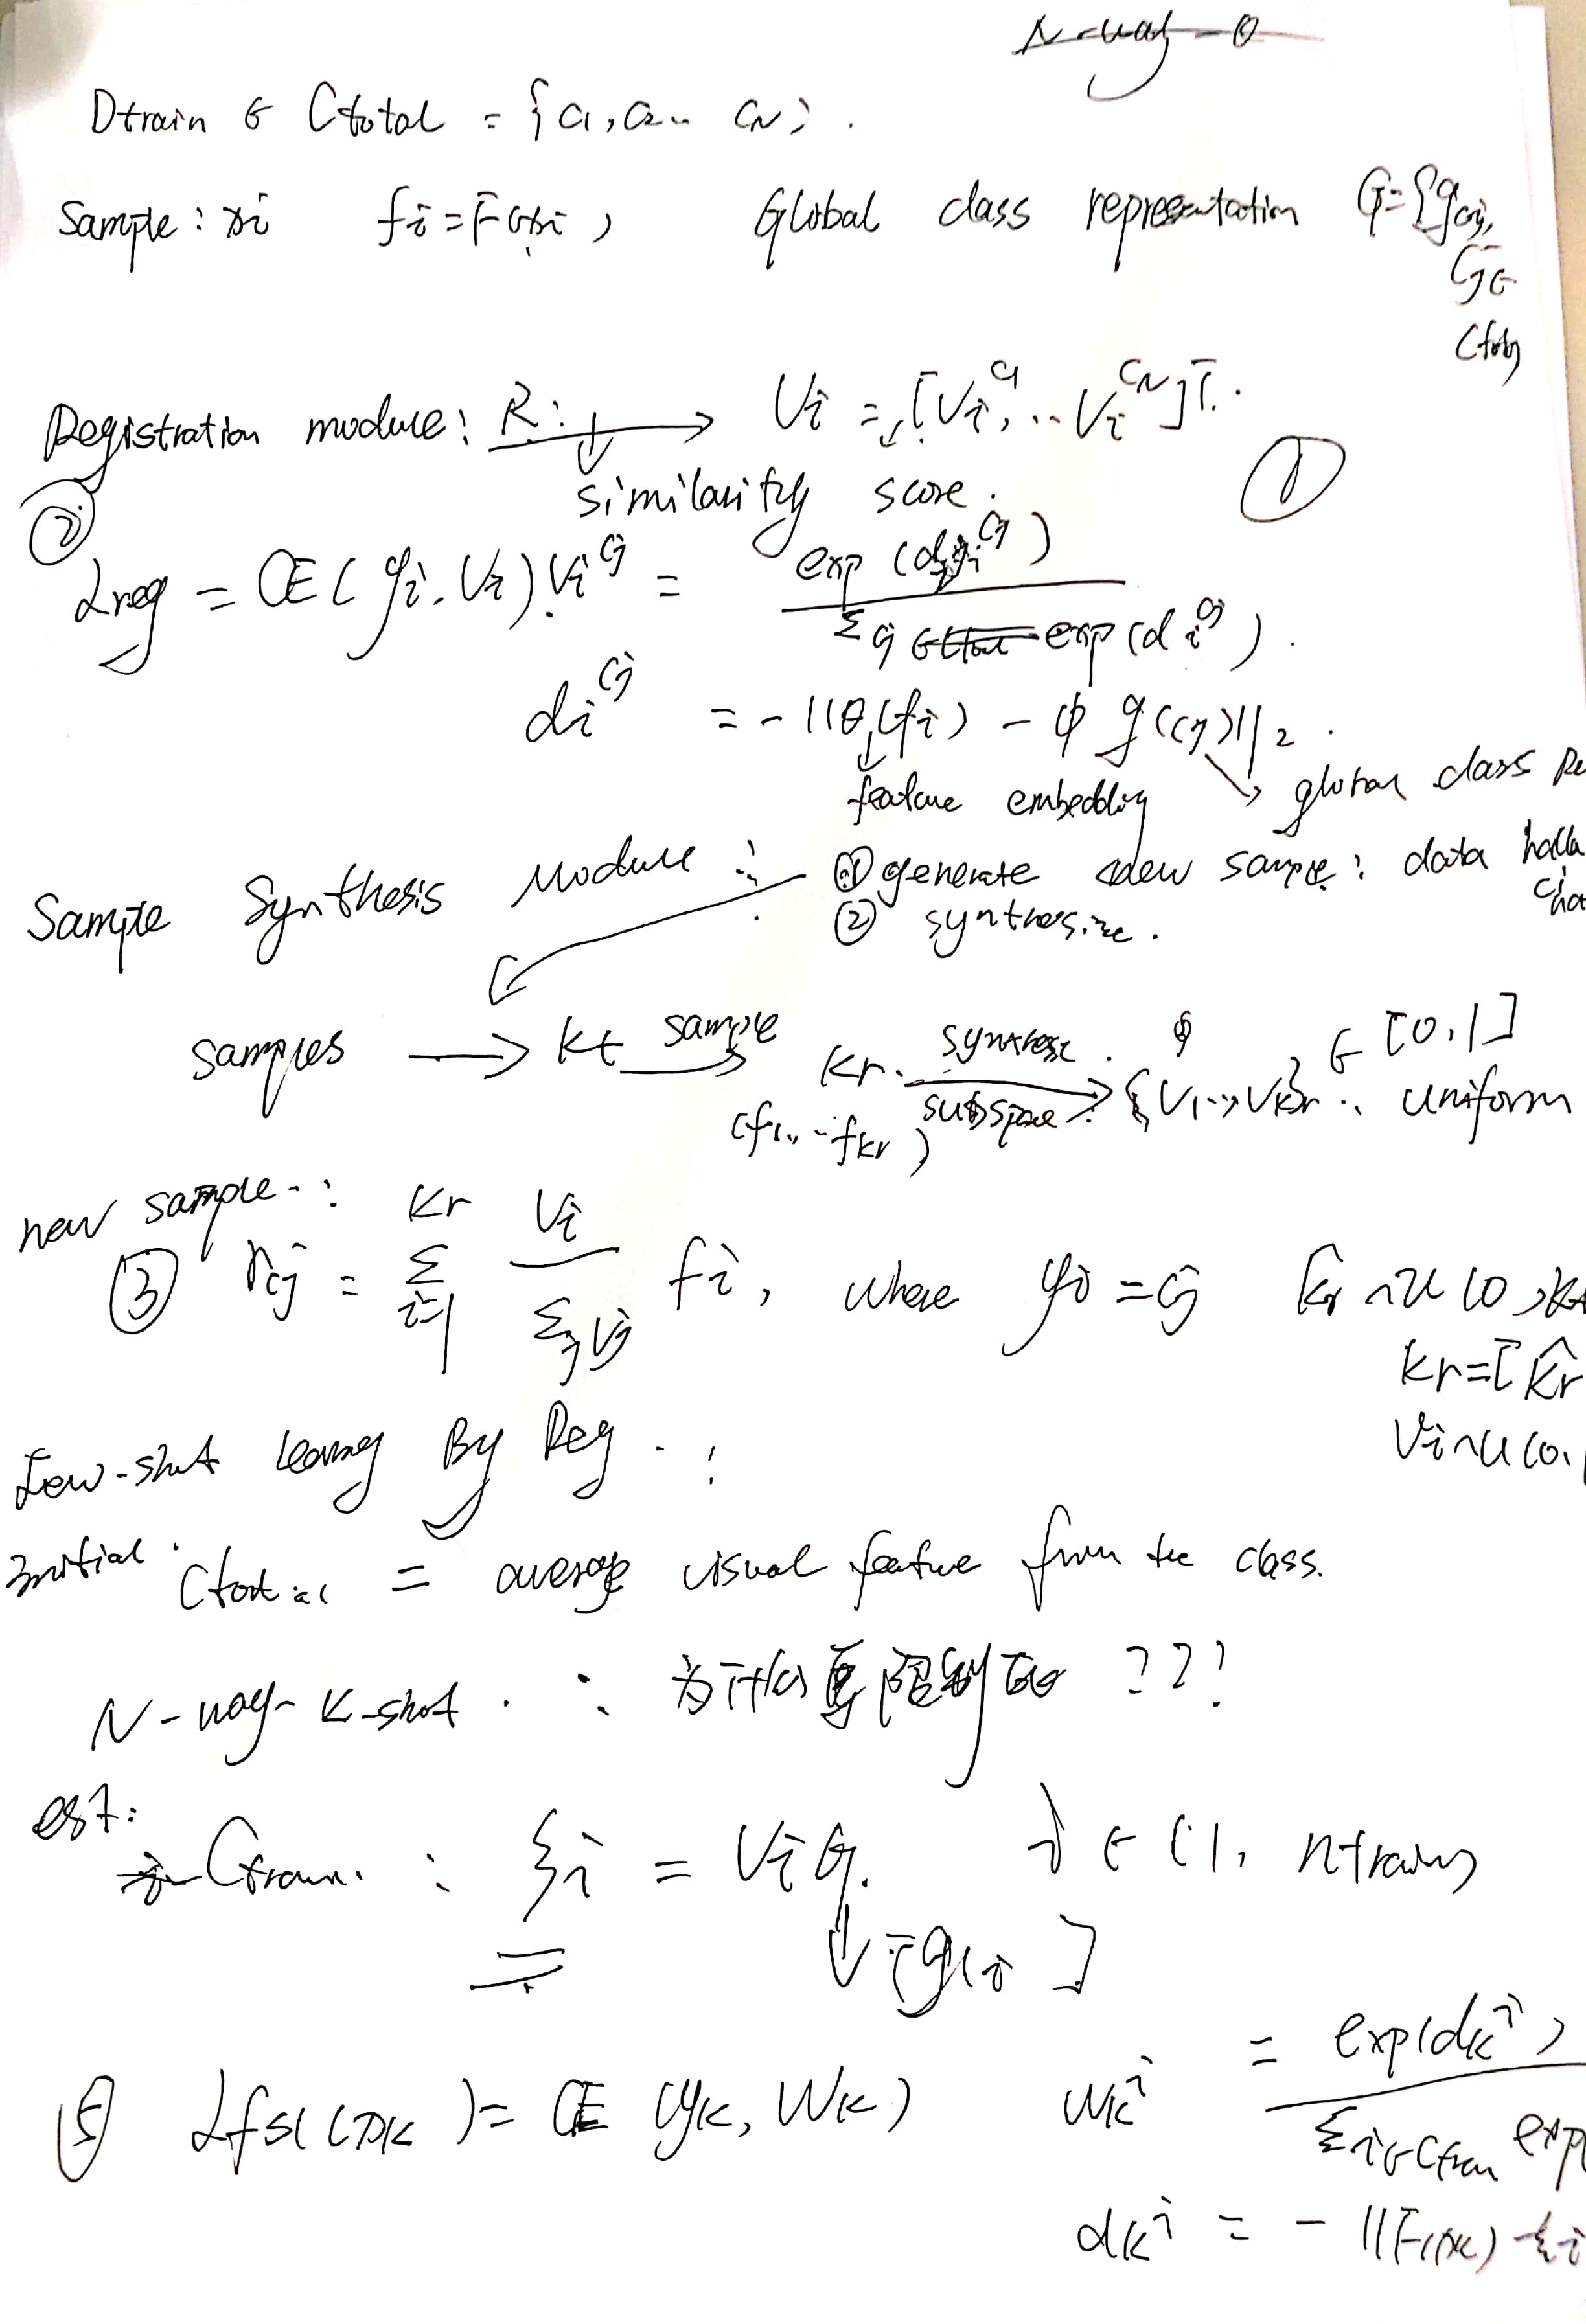 N-way-θ
Dtrain ∈ Ctotal = {c1, c2.. cN}.
Sample: xi fi = F(xi) Global class representation G={gcj,
Cj∈
Ctot
Registration module: R: → Vi = [Vi^c1, ... Vi^cN]T.
similarity score. ①
②
Lreg = CE(yi, Vi) Vi^cj = exp(di^cj) / Σcj∈Ctotal exp(di^cj).
di^cj = -||θ(fi) - φ g(cj)||2.
feature embedding global class Re
Sample Synthesis Module: ① generate new sample: data hallu
② synthesize.
samples → kt sample → kr. synthesize subspace → {V1..., Vkr} ∈ [0,1]
(f1, ... fkr) uniform
new sample:
③ rcj = Σ i=1 kr Vi / Σj Vj fi, where yi = cj k̂r ~ U(0, kt
kr=[k̂r
Vi~U(0,
Few-shot learning By Reg.:
Initial: Ctotal = average visual feature from the class.
N-way-K-shot.: 为什么要限制 ???
est:
Ctrain: ξi = ViG. i ∈ (1, ntrain)
[gci]
⑤ Lfsl(xk) = CE(yk, Wk) Wk^i = exp(dk^i) / Σi∈Ctrain exp(
dk^i = -||F(xk) - ξi